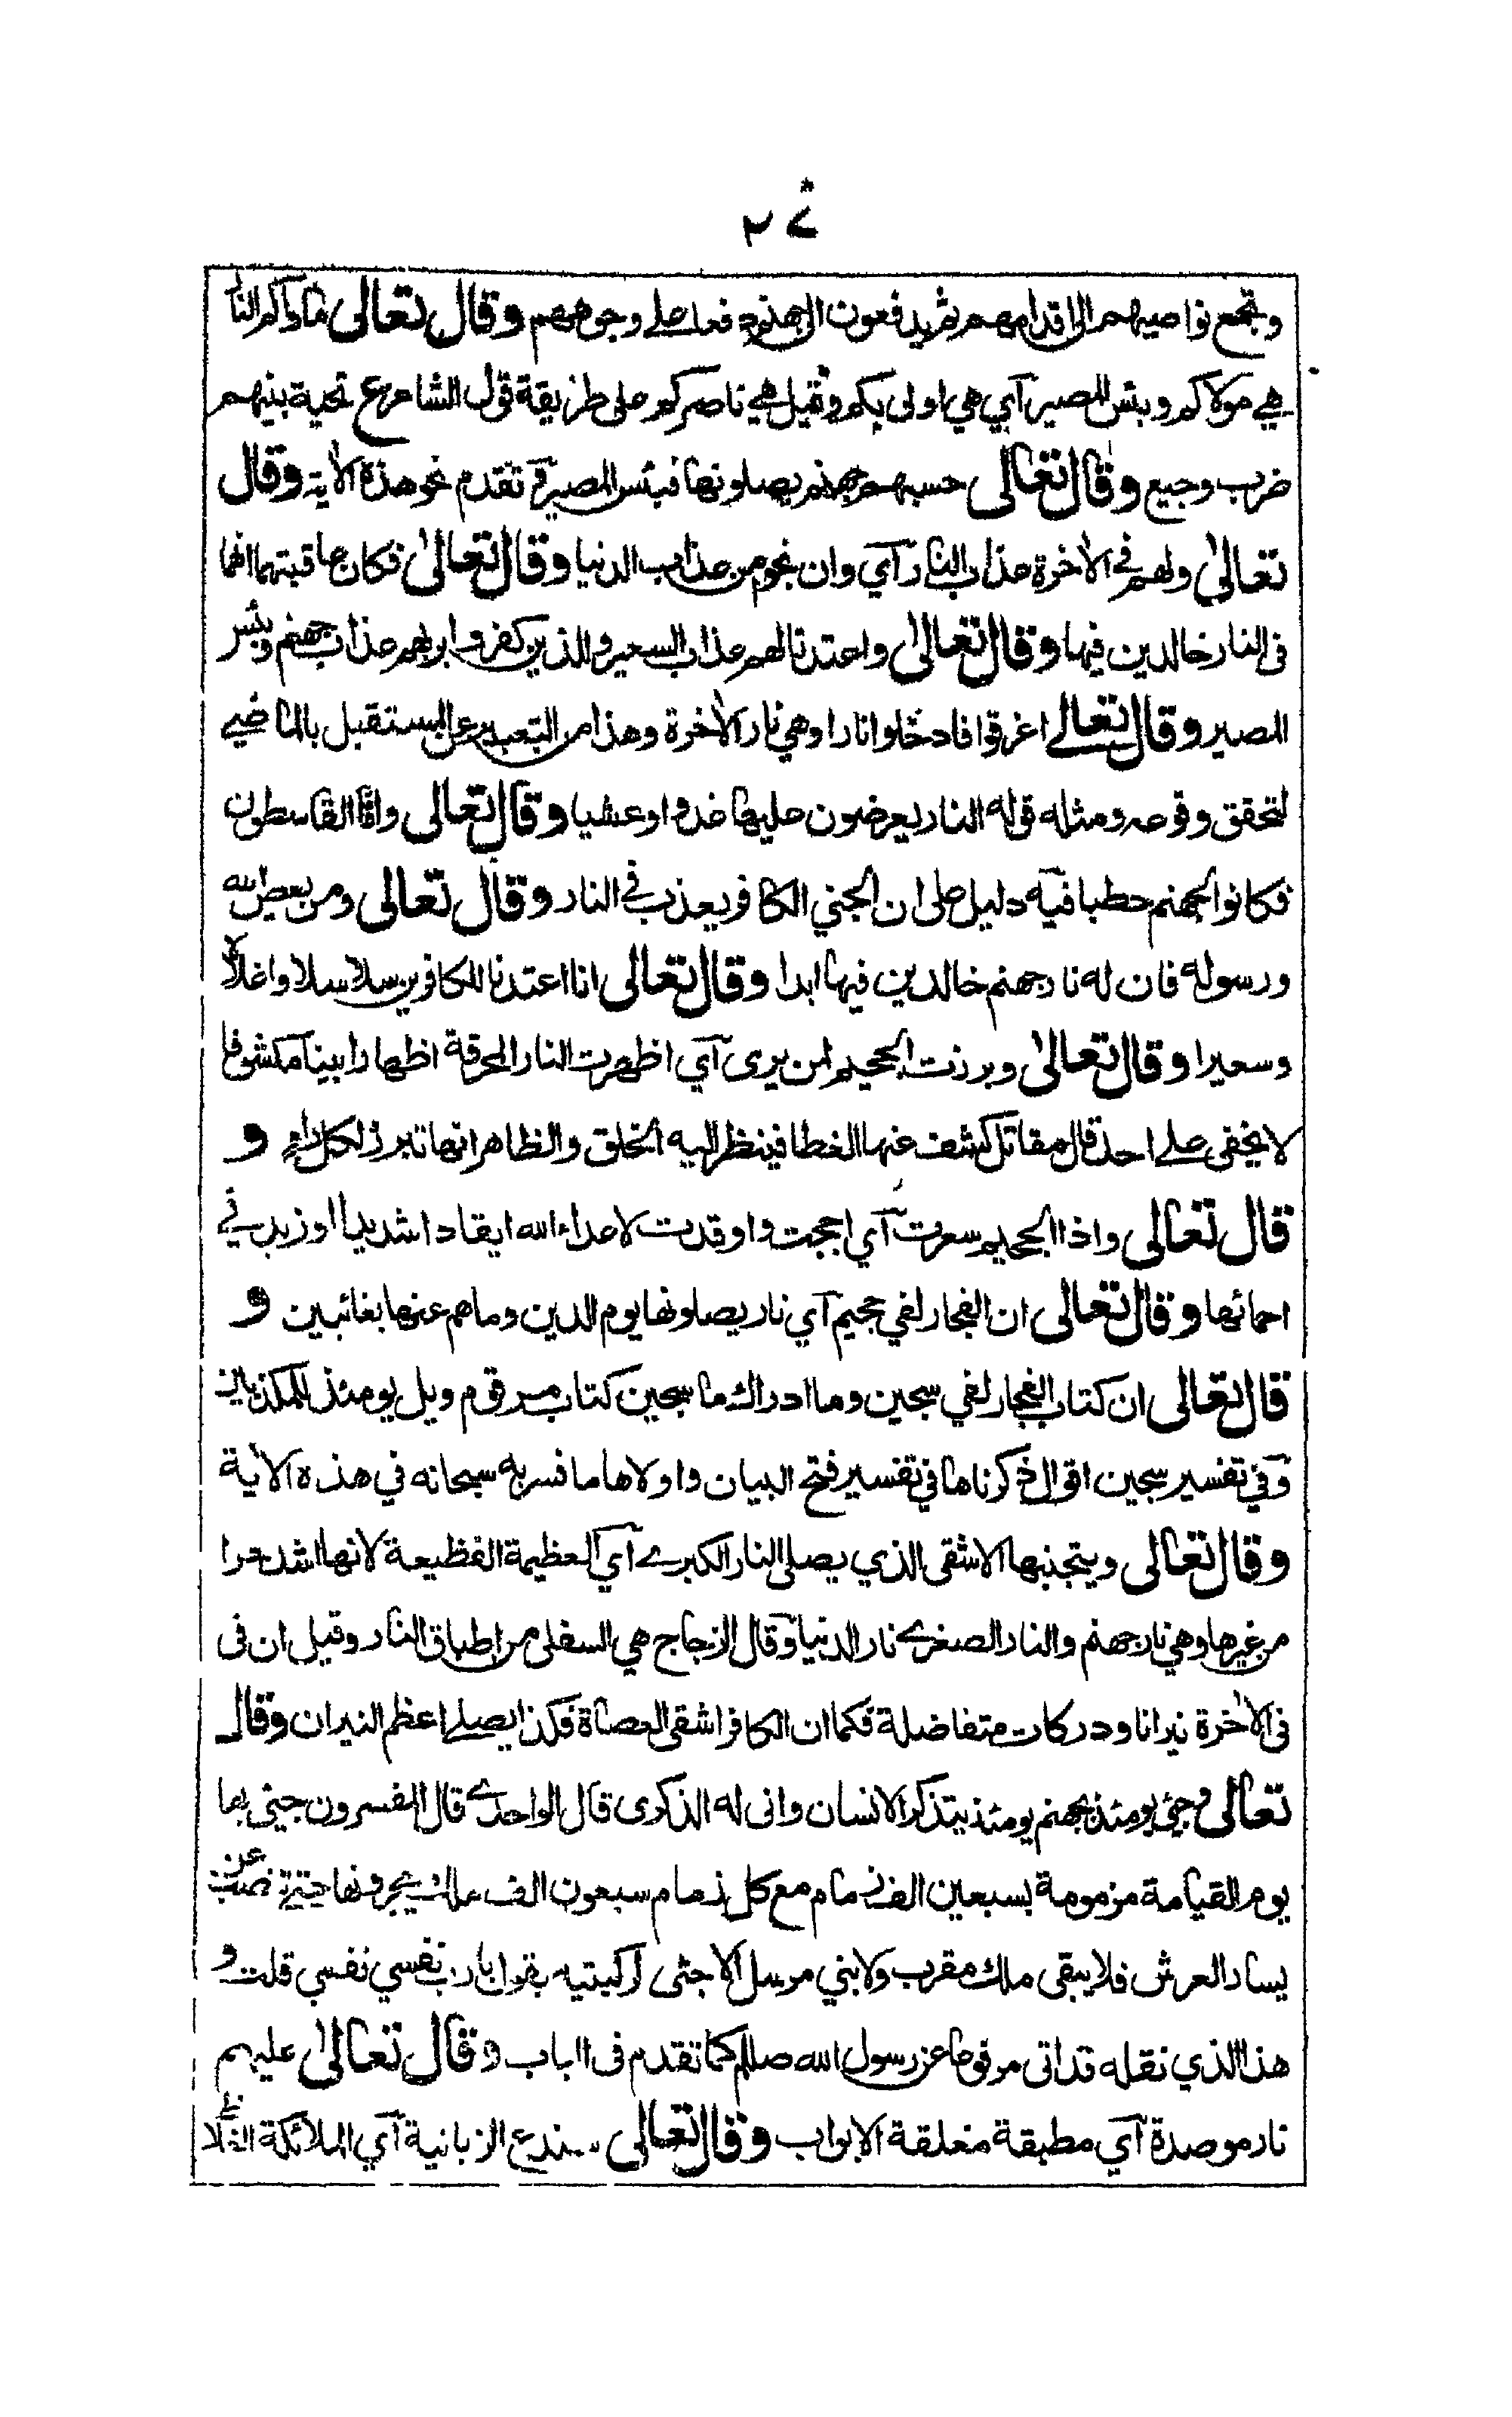 ٢٧
وتجمع نواصيهم الى اقدامهم ثم يدفعون الى جهنم دفعا على وجوههم وقال تعالى مأواكم النار
هي مولاكم وبئس المصير آي هي اولى بكم وقيل هي ناصركم على طريقة قول الشاعر ع تحية بينهم
ضرب وجيع وقال تعالى حسبهم جهنم يصلونها فبئس المصير وتقدم نحو هذه الآية وقال
تعالى ولهم في الآخرة عذاب النار آي وان نجوا من عذاب الدنيا وقال تعالى فكان عاقبتهما انهما
فى النار خالدين فيها وقال تعالى واعتدنا لهم عذاب السعير وللذين كفروا بربهم عذاب جهنم وبئس
المصير وقال تعالى اغرقوا فادخلوا نارا وهي نار الآخرة وهذا من التعبير عن المستقبل بالماضي
لتحقق وقوعه ومثله قوله النار يعرضون عليها غدوا وعشيا وقال تعالى واما القاسطون
فكانوا لجهنم حطبا فيه دليل على ان الجني الكافر يعذب في النار وقال تعالى ومن يعص الله
ورسوله فان له نار جهنم خالدين فيها ابدا وقال تعالى انا اعتدنا للكافرين سلاسلا واغلالا
وسعيرا وقال تعالى وبرزت الجحيم لمن يرى آي اظهرت النار المحرقة اظهارا بينا مكشوفا
لا يخفى على احد قال مقاتل كشف عنها الغطا فينظر اليه الخلق والظاهر انها تبرز لكل راء و
قال تعالى واذا الجحيم سعرت آي اججت واوقدت لاعداء الله ايقادا شديدا او زيد في
احمائها وقال تعالى ان الفجار لفي جحيم آي نار يصلونها يوم الدين وما هم عنها بغائبين و
قال تعالى ان كتاب الفجار لفي سجين وما ادراك ما سجين كتاب مرقوم ويل يومئذ للمكذبين
وفي تفسير سجين اقوال ذكرناها في تفسير فتح البيان واولاها ما فسر به سبحانه في هذه الآية
وقال تعالى ويتجنبها الاشقى الذي يصلى النار الكبرى آي العظيمة الفظيعة لانها اشد حرا
من غيرها وهي نار جهنم والنار الصغرى نار الدنيا وقال الزجاج هي السفلى من اطباق النار وقيل ان فى
فى الآخرة نيرانا ودركات متفاضلة فكما ان الكافر اشقى العصاة فكذا يصلى اعظم النيران وقال
تعالى وجيء يومئذ بجهنم يومئذ يتذكر الانسان وانى له الذكرى قال الواحدي قال المفسرون جيئ بها
يوم القيامة مزمومة بسبعين الف زمام مع كل زمام سبعون الف ملك يجرونها حتى تنصب عن
يسار العرش فلا يبقى ملك مقرب ولا نبي مرسل الا جثى لركبتيه يقول يا رب نفسي نفسي قلت و
هذا الذي نقله قد اتى مرفوعا عن رسول الله صللم كما تقدم فى الباب وقال تعالى عليهم
نار موصدة آي مطبقة مغلقة الابواب وقال تعالى سندع الزبانية آي الملائكة الغلاظ